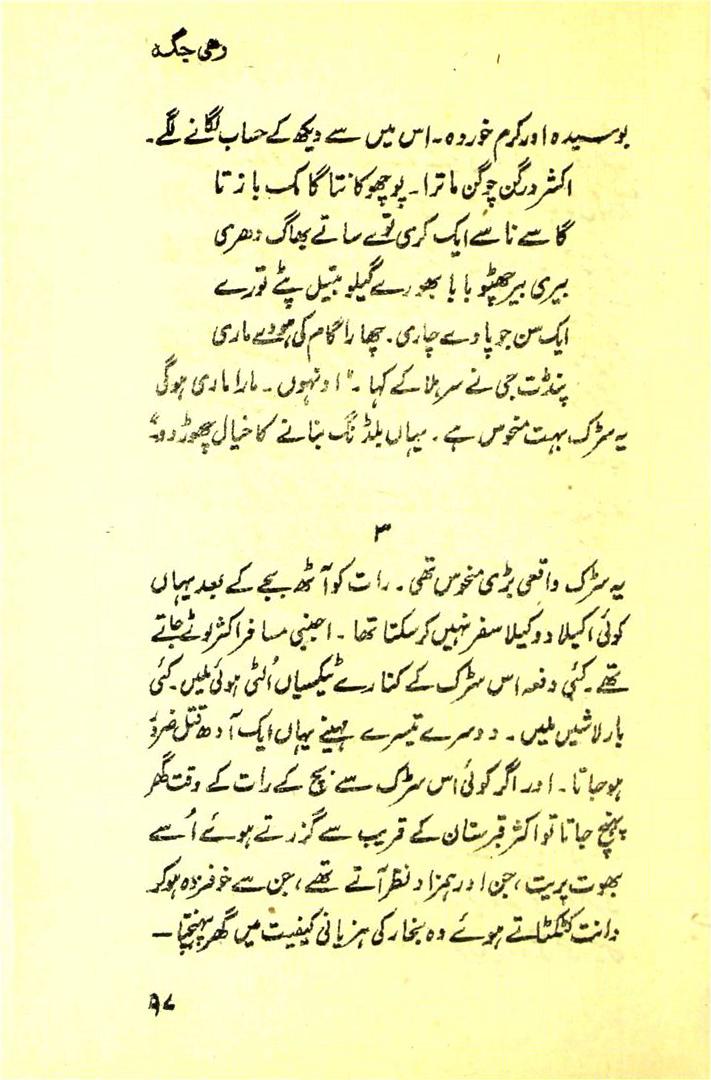 وہی جگہ
بوسیدہ اور کرم خوردہ۔ اس میں سے دیکھ کے حساب لگانے لگے۔
اکشر درگن چوگن ماترا۔ پوچھو کا نتا گا کب باز تا
گا سے نا سے ایک کری توے ساتے بھاگ دھری
بیری بیر جھپٹو بابا بھورے گیلو بتیل پٹے تورے
ایک سن جو پاوے چاری۔ چھارا گام کی ہووے ماری
پنڈت جی نے سر ہلا کے کہا۔ "اونہوں۔ مارا ماری ہوگی
یہ سڑک بہت منحوس ہے۔ یہاں بلڈنگ بنانے کا خیال چھوڑ دو"
۳
یہ سڑک واقعی بڑی منحوس تھی۔ رات کو آٹھ بجے کے بعد یہاں
کوئی اکیلا دوکیلا سفر نہیں کر سکتا تھا۔ اجنبی مسافر اکثر لوٹے جاتے
تھے۔ کئی دفعہ اس سڑک کے کنارے ٹیکسیاں اُلٹی ہوئی ملیں۔ کئی
بار لاشیں ملیں۔ دوسرے تیسرے مہینے یہاں ایک آدھ قتل ضرور
ہو جاتا۔ اور اگر کوئی اس سڑک سے بچ کے رات کے وقت گھر
پہنچ جاتا تو اکثر قبرستان کے قریب سے گزرتے ہوئے اُسے
بھوت پریت، جن اور ہمزاد نظر آتے تھے، جن سے خوفزدہ ہوکر
دانت کٹکٹاتے ہوئے وہ بخار کی ہزیانی کیفیت میں گھر پہنچتا —